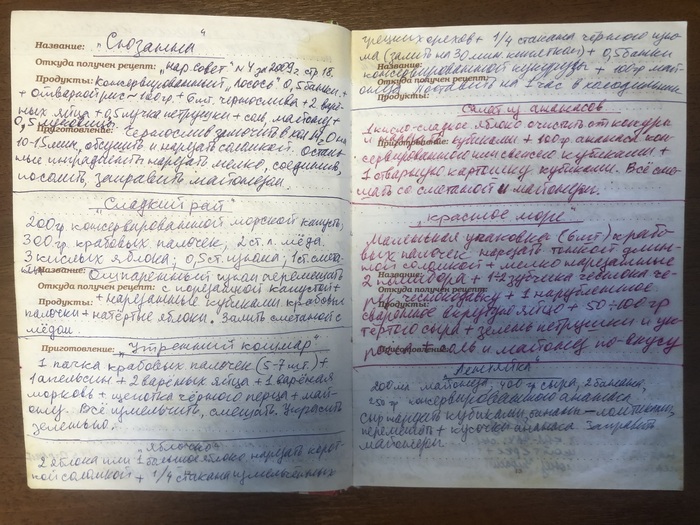 Название: „Сюзанна"
Откуда получен рецепт: „Нар. совет" № 4 за 2009 г стр. 18.
Продукты: Консервированный „лосось" 0,5 банки +
+ отварной рис – 100 гр + 6 шт. чернослива + 2 варё-
ных яйца + 0,5 пучка петрушки + соль, майонез +
0,5 луковицы.
Приготовление: Чернослив замочить в кип. H₂O на
10-15 мин, обсушить и нарезать соломкой. Осталь-
ные ингредиенты нарезать мелко, соединить,
посолить, заправить майонезом.
„Сладкий рай"
200 гр. консервированной морской капусты,
300 гр. крабовых палочек, 2 ст. л. мёда.
3 кислых яблока, 0,5 ст. изюма, 1 ст. смета-
ны
Название: Ошпаренный изюм перемешать
Откуда получен рецепт: с порезанной капустой +
Продукты: + нарезанные кубиками крабовые
палочки + натёртые яблоки. Залить сметаной с
мёдом.
Приготовление: „Утренний кошмар"
1 пачка крабовых палочек (5-7 шт.) +
1 апельсин + 2 варёных яйца + 1 варёная
морковь + щепотка чёрного перца + май-
онез. Всё измельчить, смешать. Украсить
зеленью.
„Яблочко"
2 яблока или 1 большое яблоко нарезать корот-
кой соломкой + 1/4 стакана измельчённых
грецких орехов + 1/4 стакана чёрного изю-
ма (залить на 30 мин кипятком) + 0,5 банки
Название:
консервированной кукурузы + 100 гр май-
онеза. Поставить на 1 час в холодильник.
Продукты:
Салат из ананасов
1 кисло-сладкое яблоко очистить от кожуры
и нарезать кубиками + 100 гр ананаса кон-
Приготовление:
сервированного или свежего кубиками +
1 отварную картошку кубиками. Всё сме-
шать со сметаной и майонезом.
„Красное море"
Маленькая упаковка (6 шт) крабо-
вых палочек нарезать тонкой длин-
ной соломкой + мелко нарезанные
Название:
2 помидора + 1-2 зубчика чеснока че-
Откуда получен рецепт:
рез чеснокодавку + 1 нарубленное
Продукты:
сваренное вкрутую яйцо + 50÷100 гр
тёртого сыра + зелень петрушки и ук-
Приготовление:
ропа + соль и майонез по вкусу
„Лентяйка"
200 мл майонеза, 400 гр сыра, 2 банана,
250 гр консервированного ананаса.
Сыр нарезать кубиками, бананы – ломтиками,
перемешать + кусочки ананаса. Заправить
майонезом.